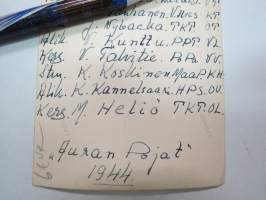 J. Nybacka. TKT OT.
Alik. V. Kunttu. P.P.T. VL.
Kers. V. Talvitie. P.P.o. VV.
Stm. K. Koskinen. Maa P.K.H.
Alik. K. Kannelsaari. H.P.S. OV.
Kers. M. Heliö T.K.T. OL.
"Auran Pojat"
1944